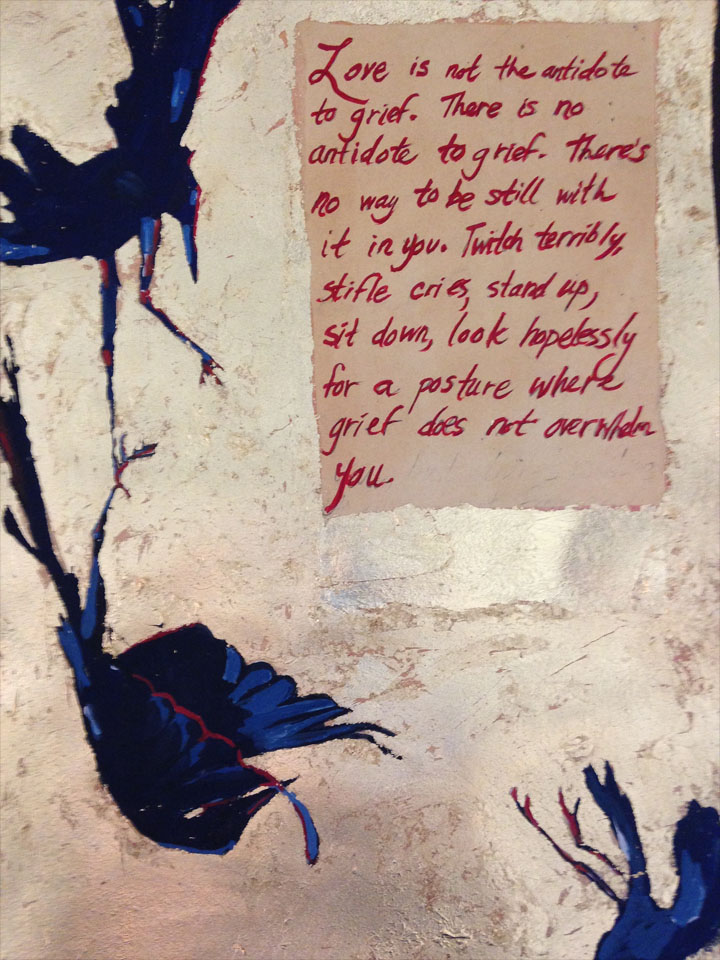 Love is not the antidote
to grief. There is no
antidote to grief. There's
no way to be still with
it in you. Twitch terribly,
stifle cries, stand up,
sit down, look hopelessly
for a posture where
grief does not overwhelm
you.